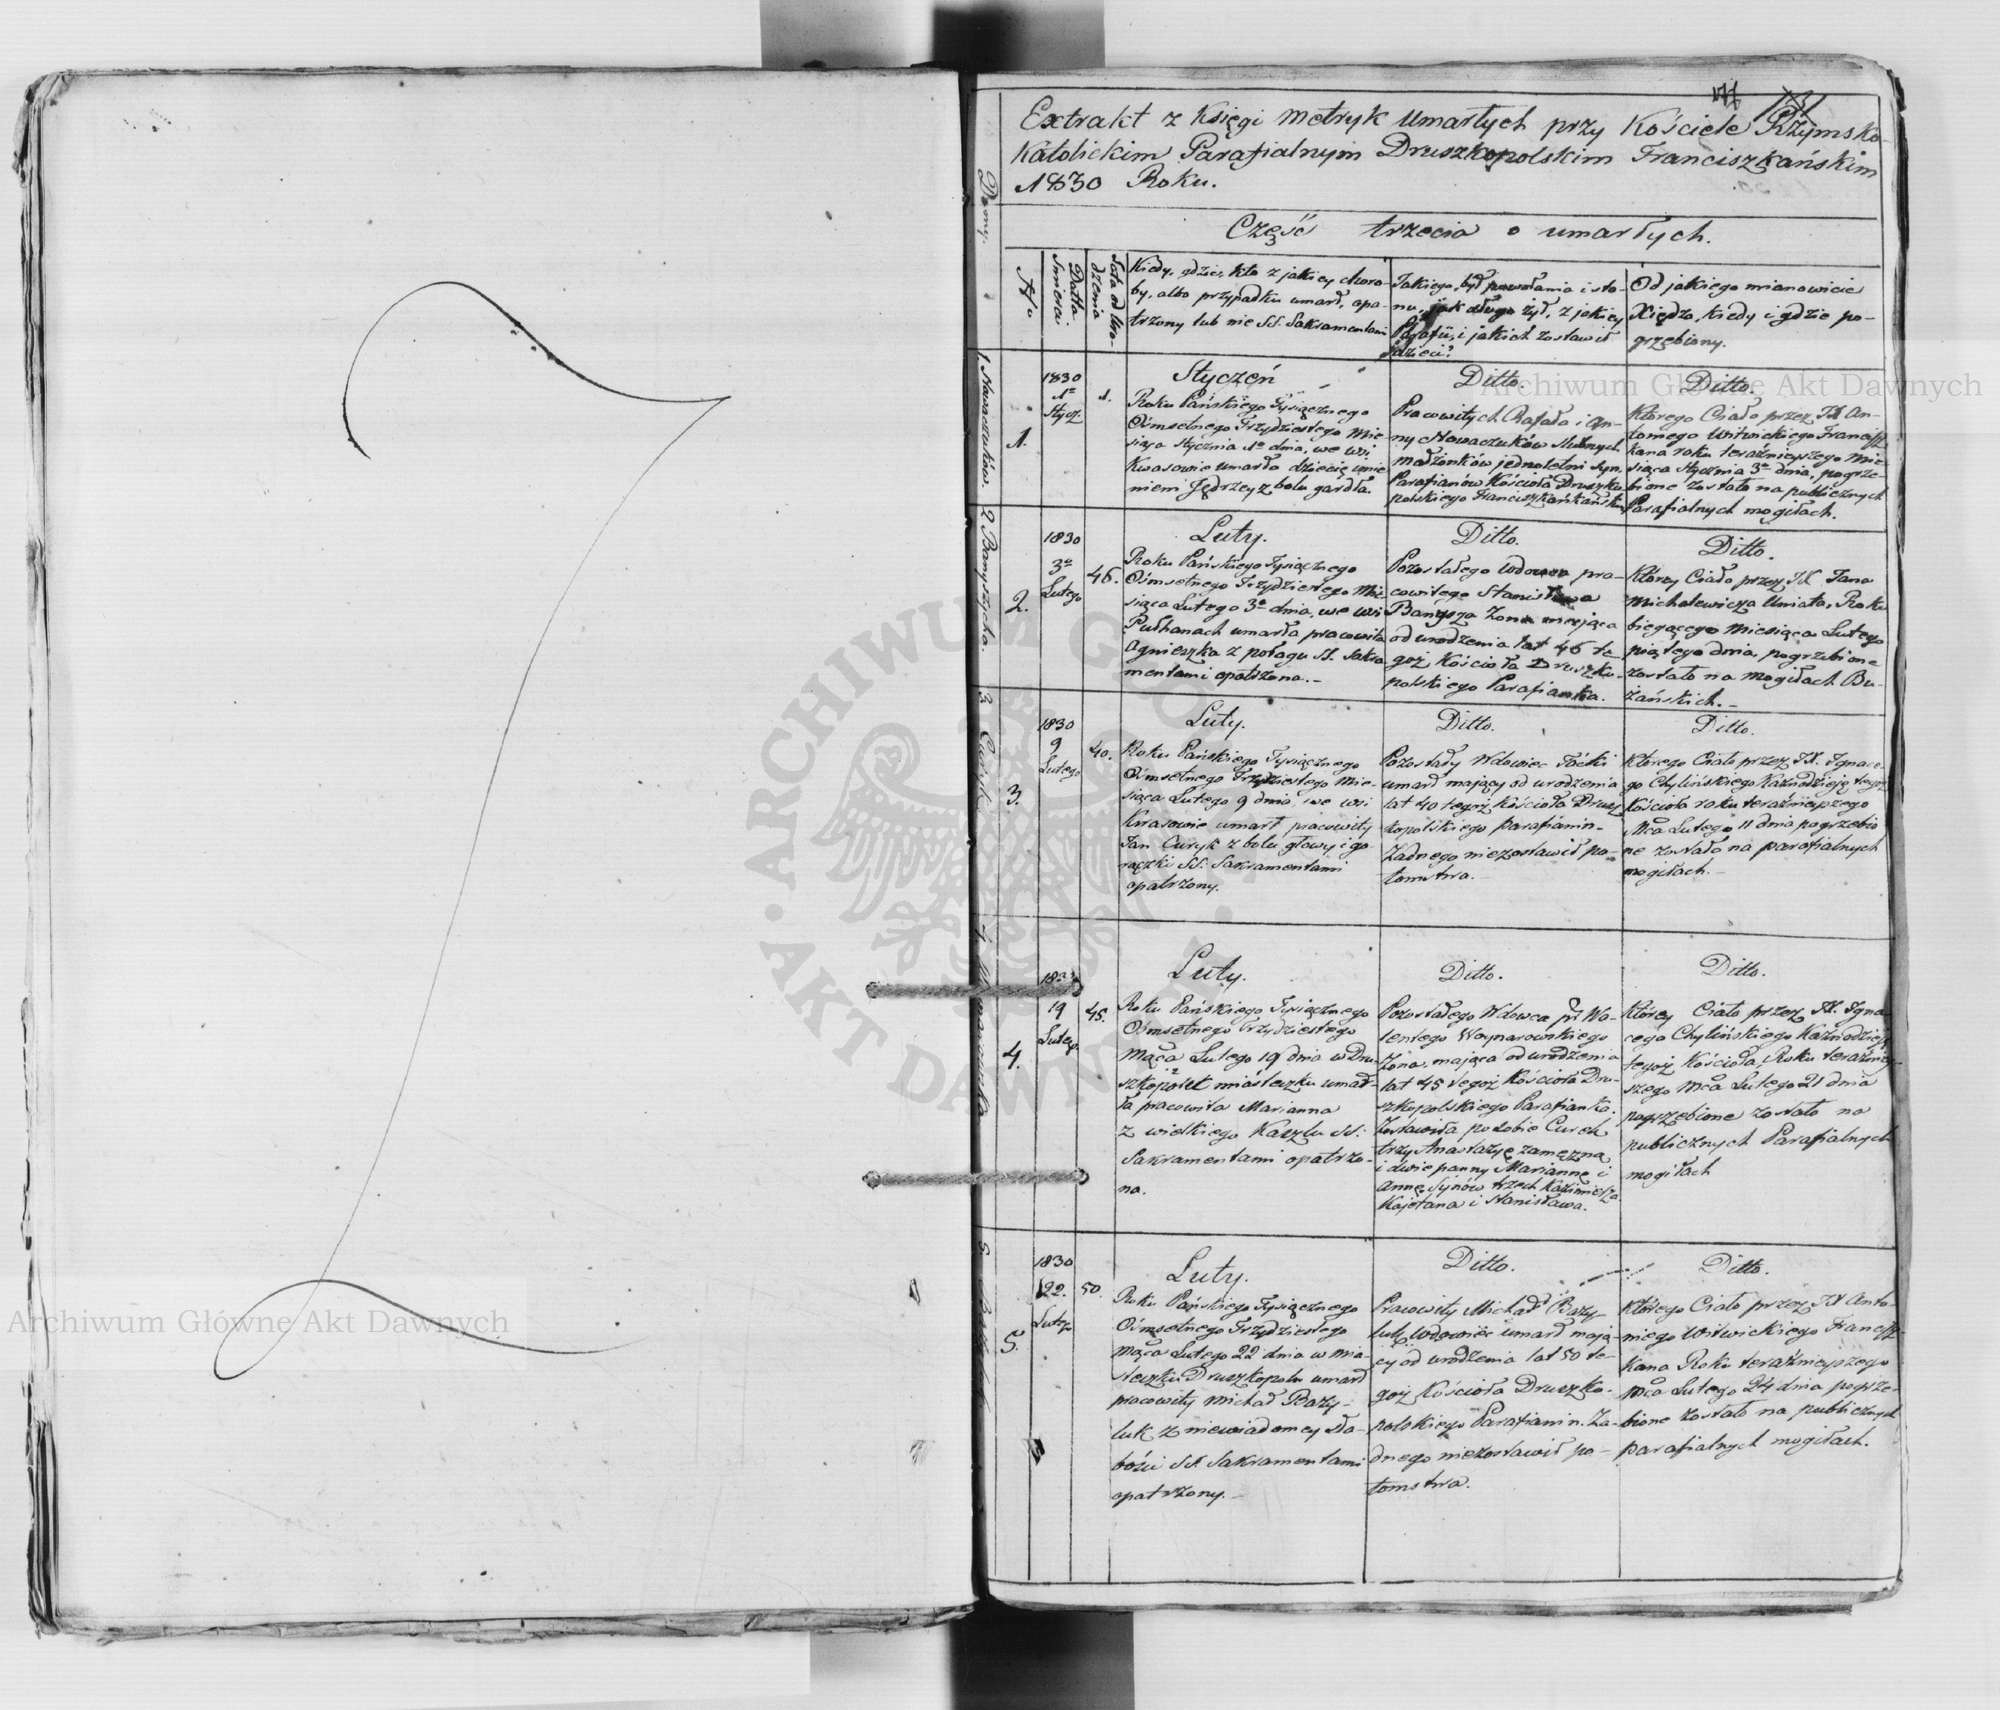 Extrakt z Księgi metryk Umarłych przy Kościele Rzymsko-
Katolickim Parafialnym Druszkopolskim Franciszkańskim
1830 Roku.
Część trzecia o umarłych.
Domy.
No
Datta Śmierci.
Lata od Urodzenia
Kiedy, gdzie, kto z jakiey choro-
by, albo przypadku umarł, opa-
trzony lub nie SS. Sakramentami
Jakiego był powołania i sta-
nu, jak długo żył, z jakiey
Parafii, i jakich zostawił
dzieci?
Od jakiego mianowicie
Xiędza, kiedy i gdzie po-
grzebiony.
1 Nowaczuków.
1.
1830
1o
Stycz.
1.
Styczeń
Roku Pańskiego Tysiącznego
Ośmsetnego Trzydziestego Mie-
siąca Stycznia 1o dnia, we wsi
Kwasowie umarło dziecię imie
niem Jędrzey z bolu gardła.
Ditto.
Pracowitych Rafała i An-
ny Nowaczuków ślubnych
małżonków jednoletni Syn,
Parafianów Kościoła Druszko
polskiego
Ditto.
Którego Ciało przez JX An-
toniego Witwickiego Francisz
kana roku teraźnieyszego Mie-
siąca Stycznia 3o dnia, pogrze-
bione zostało na publicznych
Parafialnych mogiłach.
2
2.
1830
3o
Lutego
46.
Luty.
Roku Pańskiego Tysiącznego
Ośmsetnego Trzydziestego Mie-
siąca Lutego 3o dnia, we wsi
Pułhanach umarła pracowita
Agnieszka z połogu SS. Sakra
mentami opatrzona.-
Ditto.
Pozostałego Wdowca pra-
cowitego Stanisława
Banysza Żona mająca
od urodzenia lat 46 te-
goż Kościoła Druszko-
polskiego Parafianka.
Ditto.
Którey Ciało przez JX Jana
Michalewicza Uniata, Roku
biegącego Miesiąca Lutego
piątego dnia, pogrzebione
zostało na mogiłach Bu-
żańskich.-
3
3.
1830
9
Lutego
40.
Luty.
Roku Pańskiego Tysiącznego
Ośmsetnego Trzydziestego Mie-
siąca Lutego 9 dnia, we wsi
Kwasowie umarł pracowity
Jan Curyk z bolu głowy i go-
rączki SS. Sakramentami
opatrzony.
Ditto.
Pozostały Wdowiec
umarł mający od urodzenia
lat 40 tegoż Kościoła Drusz
kopolskiego parafianin.
Żadnego niezostawił po-
tomstwa.-
Ditto.
Którego Ciało przez JX. Ignace-
go Chylińskiego Kaznodzieję tegoż
Kościoła roku teraźnieyszego
Mca Lutego 11 dnia pogrzebio
ne zostało na parafialnych
mogiłach.-
4.
4.
19
Lutego.
45.
Luty.
Roku Pańskiego Tysiącznego
Ośmsetnego Trzydziestego
Mąca Lutego 19 dnia w Dru-
szkopolu miasteczku umar-
ła pracowita Marianna
z wielkiego Kaszlu SS.
Sakramentami opatrzo-
na.
Ditto.
Pozostałego Wdowca Wa-
lentego Woynarowskiego
Żona, mająca od urodzenia
lat 45 tegoż Kościoła Dru-
szkopolskiego Parafianka.
Zostawiła po sobie Curek
trzy Anastazyę zamężną
i dwie panny Mariannę i
Annę, Synów trzech Kazimierza
Kajetana i Stanisława.
Ditto.
Którey Ciało przez JX. Igna-
cego Chylińskiego Kaznodzieję
tegoż Kościoła, Roku teraźniey-
szego Mca Lutego 21 dnia
pogrzebione zostało na
publicznych Parafialnych
mogiłach
5
5.
1830
22.
Lutego
50.
Luty.
Roku Pańskiego Tysiącznego
Ośmsetnego Trzydziestego
Mąca Lutego 22 dnia w mia-
steczku Druszkopolu umarł
pracowity Michał Bazy-
luk z niewiadomey sła-
bości SS. Sakramentami
opatrzony.-
Ditto.
Pracowity Michał Bazy-
luk, Wdowiec umarł mają-
cy od urodzenia lat 50 te-
goż Kościoła Druszko-
polskiego Parafianin. Ża-
dnego niezostawił po-
tomstwa.
Ditto.
Którego Ciało przez JX Anto-
niego Witwickiego Francisz-
kana Roku teraźnieyszego
Mca Lutego 24 dnia pogrze-
bione zostało na publicznych
parafialnych mogiłach.
Archiwum Główne Akt Dawnych
Archiwum Główne Akt Dawnych
ARCHIWUM GŁÓWNE AKT DAWNYCH